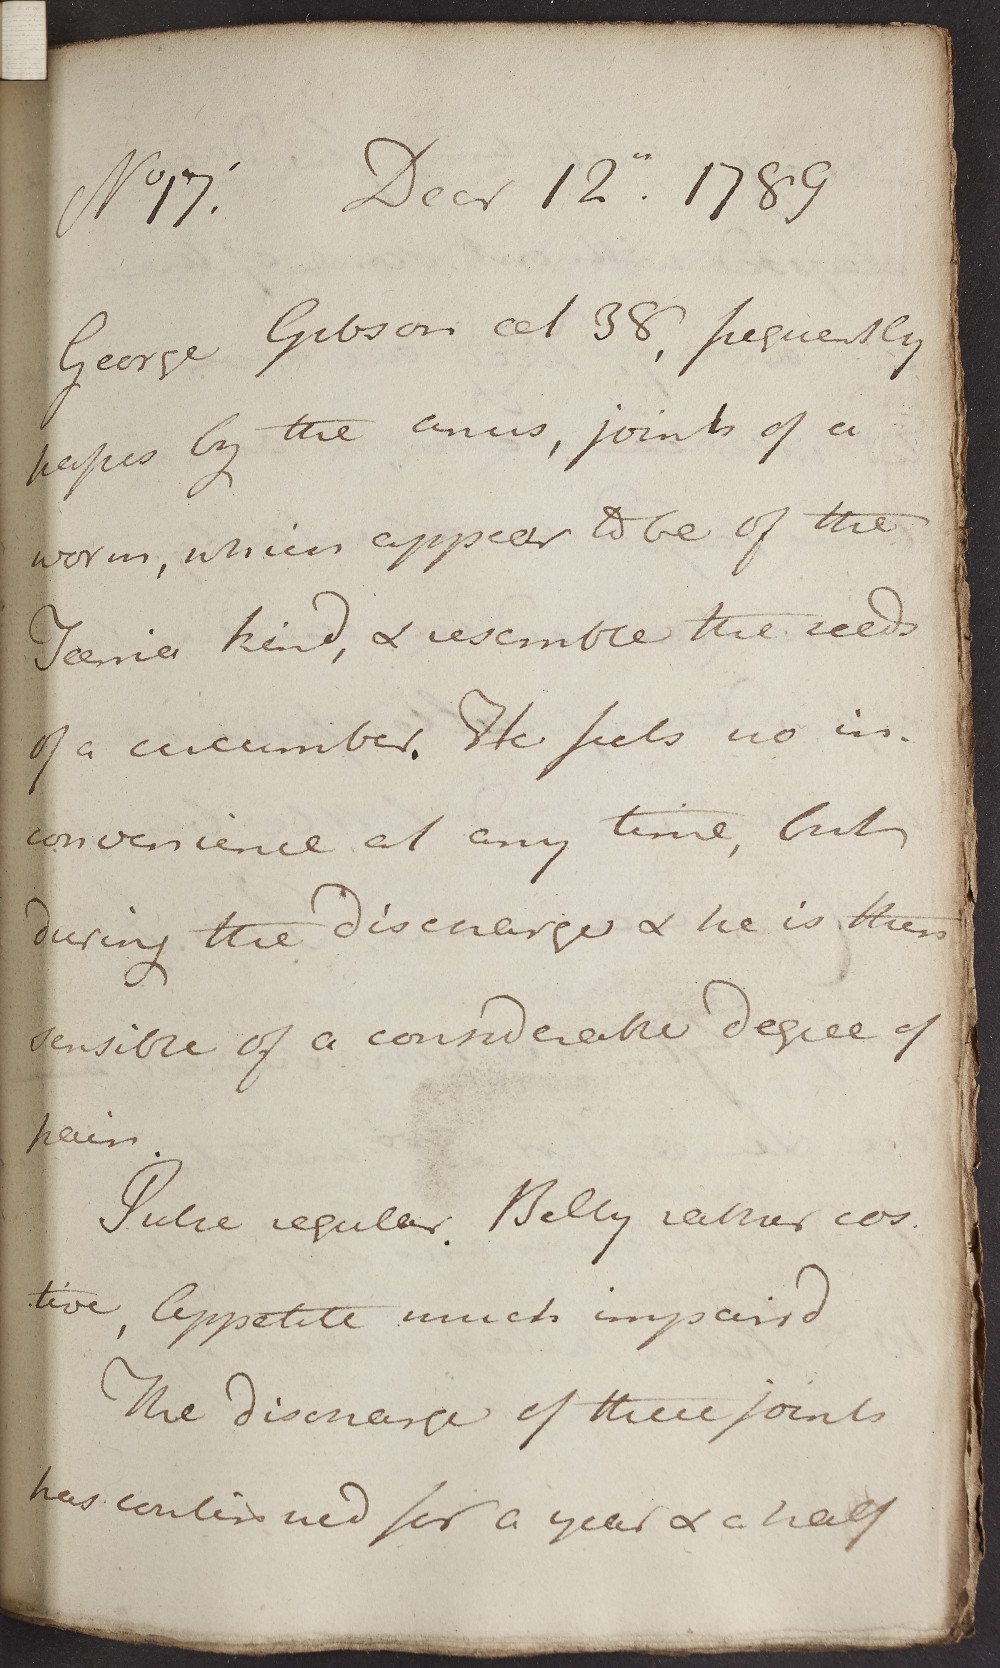 No 17. Decr 12". 1789
George Gibson aet 38, frequently
passes by the anus, joints of a
worm, which appear to be of the
Taenia kind, & resemble the seeds
of a cucumber. He feels no in-
convenience at any time, but
during the discharge & he is then
sensible of a considerable degree of
pain.
Pulse regular. Belly rather cos-
tive, Appetite much impaird
The discharge of these joints
has continued for a year & a half